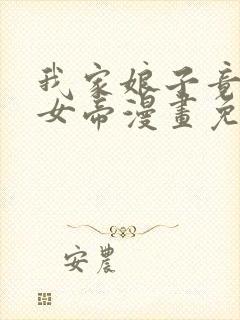 我家娘子竟
女帝漫畫免
安農